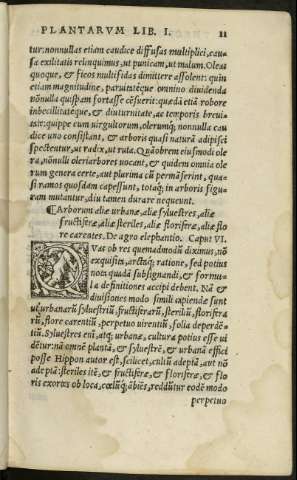 PLANTARVM LIB. I. 11
tur: nonnullas etiam caudice diffusas multiplici, cau⸗
sa exilitatis relinquimus, ut punicam, ut malum. Oleas
quoque, & ficos multifidas dimittere assolent: quin
etiam magnitudine, paruitatéque omnino diuidenda
nõnulla quispiam fortasse cẽsuerit: quædã etiã robore
inbecillitatéque, & diuturnitate, ac temporis breui⸗
tate: quippe cum uirgultorum, olerumq́; nonnulla cau
dice uno consistant, & arboris quasi naturã adipisci
spectentur, ut radix, ut ruta. Quãobrem eiusmodi ole
ra, nõnulli oleriarbores uocant, & quidem omnia ole
rum genera certe, aut plurima cũ permãserint, qua⸗
si ramos quosdam capessunt, totaq́; in arboris figu⸗
ram mutantur, diu tamen durare nequeunt.
¶Arborum aliæ urbanæ, aliæ syluestres, aliæ
fructiferæ, aliæ steriles, aliæ floriferæ, aliæ flo
re carentes. De agro elephantio. Caput VI.
QVas ob res quemadmodũ diximus, nõ
exquisita, arctáq; ratione, sed potius
nota quadã subsignandi, & formu⸗
la definitiones accipi debent. Nã &
diuisiones modo simili capiendæ sunt
ut urbanarũ syluestriũ, fructiferarũ, steriliũ, floriferá
rũ, flore carentiũ, perpetuo uirentiũ, folia deperdẽ⸗
tiũ. Syluestres eni, atq; urbanæ, cultura potius esse ui
dẽtur: nã omnẽ plantã, & syluestrẽ, & urbanã effici
posse Hippon autor est, scilicet, cultũ adeptã, aut nõ
adeptã: steriles itẽ, & fructiferæ, & floriferæ, & flo
ris exortes ob loca, cœlũq́; ãbiẽs, reddũtur eodẽ modo
perpetuo